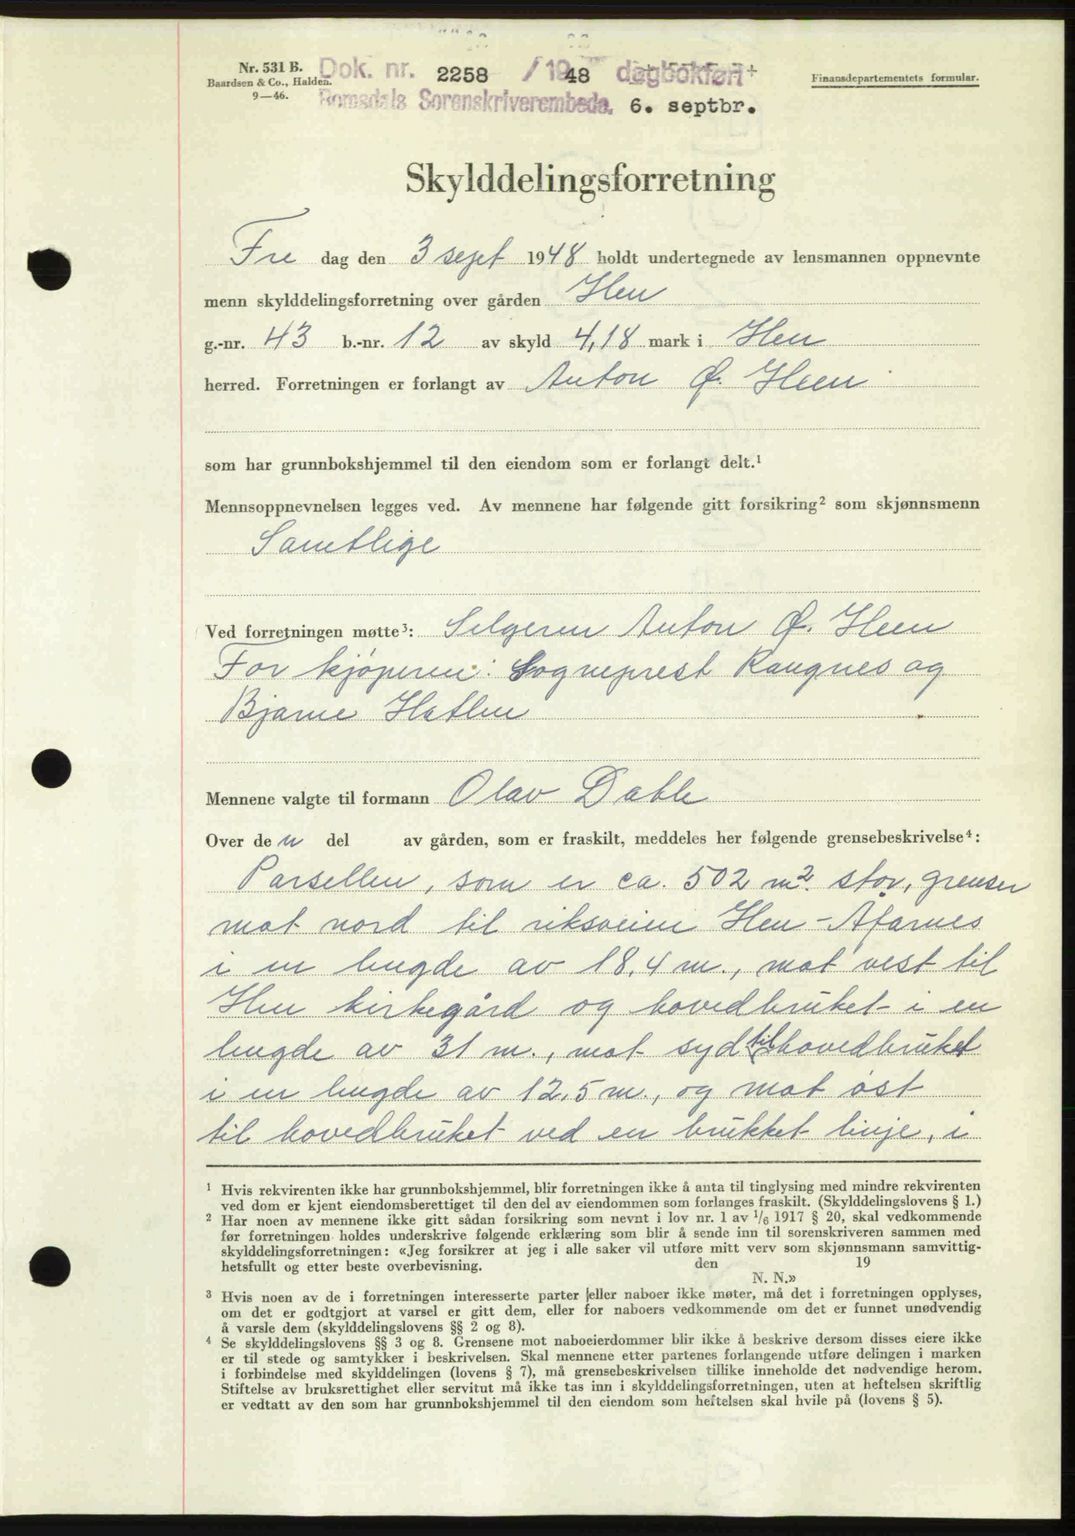 Nr. 531 B.
Baardsen & Co., Halden.
9—46.
Dok. nr. 2258 / 1948 dagbokført
Romsdals Sorenskriverembede. 6. septbr.
Finansdepartementets formular.
Skylddelingsforretning
Fre dag den 3 sept 1948 holdt undertegnede av lensmannen oppnevnte
menn skylddelingsforretning over gården Hen
g.-nr. 43 b.-nr. 12 av skyld 4,18 mark i Hen
herred. Forretningen er forlangt av Anton Ø. Heen
som har grunnbokshjemmel til den eiendom som er forlangt delt.¹
Mennsoppnevnelsen legges ved. Av mennene har følgende gitt forsikring² som skjønnsmenn
Samtlige
Ved forretningen møtte³: Selgeren Anton Ø. Heen
For kjøperen: Sogneprest Raugnes og
Bjarne Hatlen
Mennene valgte til formann Olav Dahle
Over den del av gården, som er fraskilt, meddeles her følgende grensebeskrivelse⁴:
Parsellen, som er ca. 502 m². stor, grenser
mot nord til riksveien Hen - Åfarnes
i en lengde av 18,4 m., mot vest til
Hen kirkegård og hovedbruket i en
lengde av 31 m., mot syd til hovedbruket
i en lengde av 12,5 m., og mot øst
til hovedbruket ved en brukket linje, i
¹ Hvis rekvirenten ikke har grunnbokshjemmel, blir forretningen ikke å anta til tinglysing med mindre rekvirenten
ved dom er kjent eiendomsberettiget til den del av eiendommen som forlanges fraskilt. (Skylddelingslovens § 1.)
² Har noen av mennene ikke gitt sådan forsikring som nevnt i lov nr. 1 av 1/6 1917 § 20, skal vedkommende
før forretningen holdes underskrive følgende erklæring som blir å sende inn til sorenskriveren sammen med
skylddelingsforretningen: «Jeg forsikrer at jeg i alle saker vil utføre mitt verv som skjønnsmann samvittig-
hetsfullt og etter beste overbevisning. den 19
N. N.»
³ Hvis noen av de i forretningen interesserte parter eller naboer ikke møter, må det i forretningen opplyses,
om det er godtgjort at varsel er gitt dem, eller for naboers vedkommende om det er funnet unødvendig
å varsle dem (skylddelingslovens §§ 2 og 8).
⁴ Se skylddelingslovens §§ 3 og 8. Grensene mot naboeierdommer blir ikke å beskrive dersom disses eiere ikke
er til stede og samtykker i beskrivelsen. Skal mennene etter partenes forlangende utføre delingen i marken
i forbindelse med skylddelingen (lovens § 7), må grensebeskrivelsen tillike inneholde det nødvendige herom.
Stiftelse av bruksrettighet eller servitut må ikke tas inn i skylddelingsforretningen, uten at heftelsen skriftlig
er vedtatt av den som har grunnbokshjemmel til den eiendom som heftelsen skal hvile på (lovens § 5).